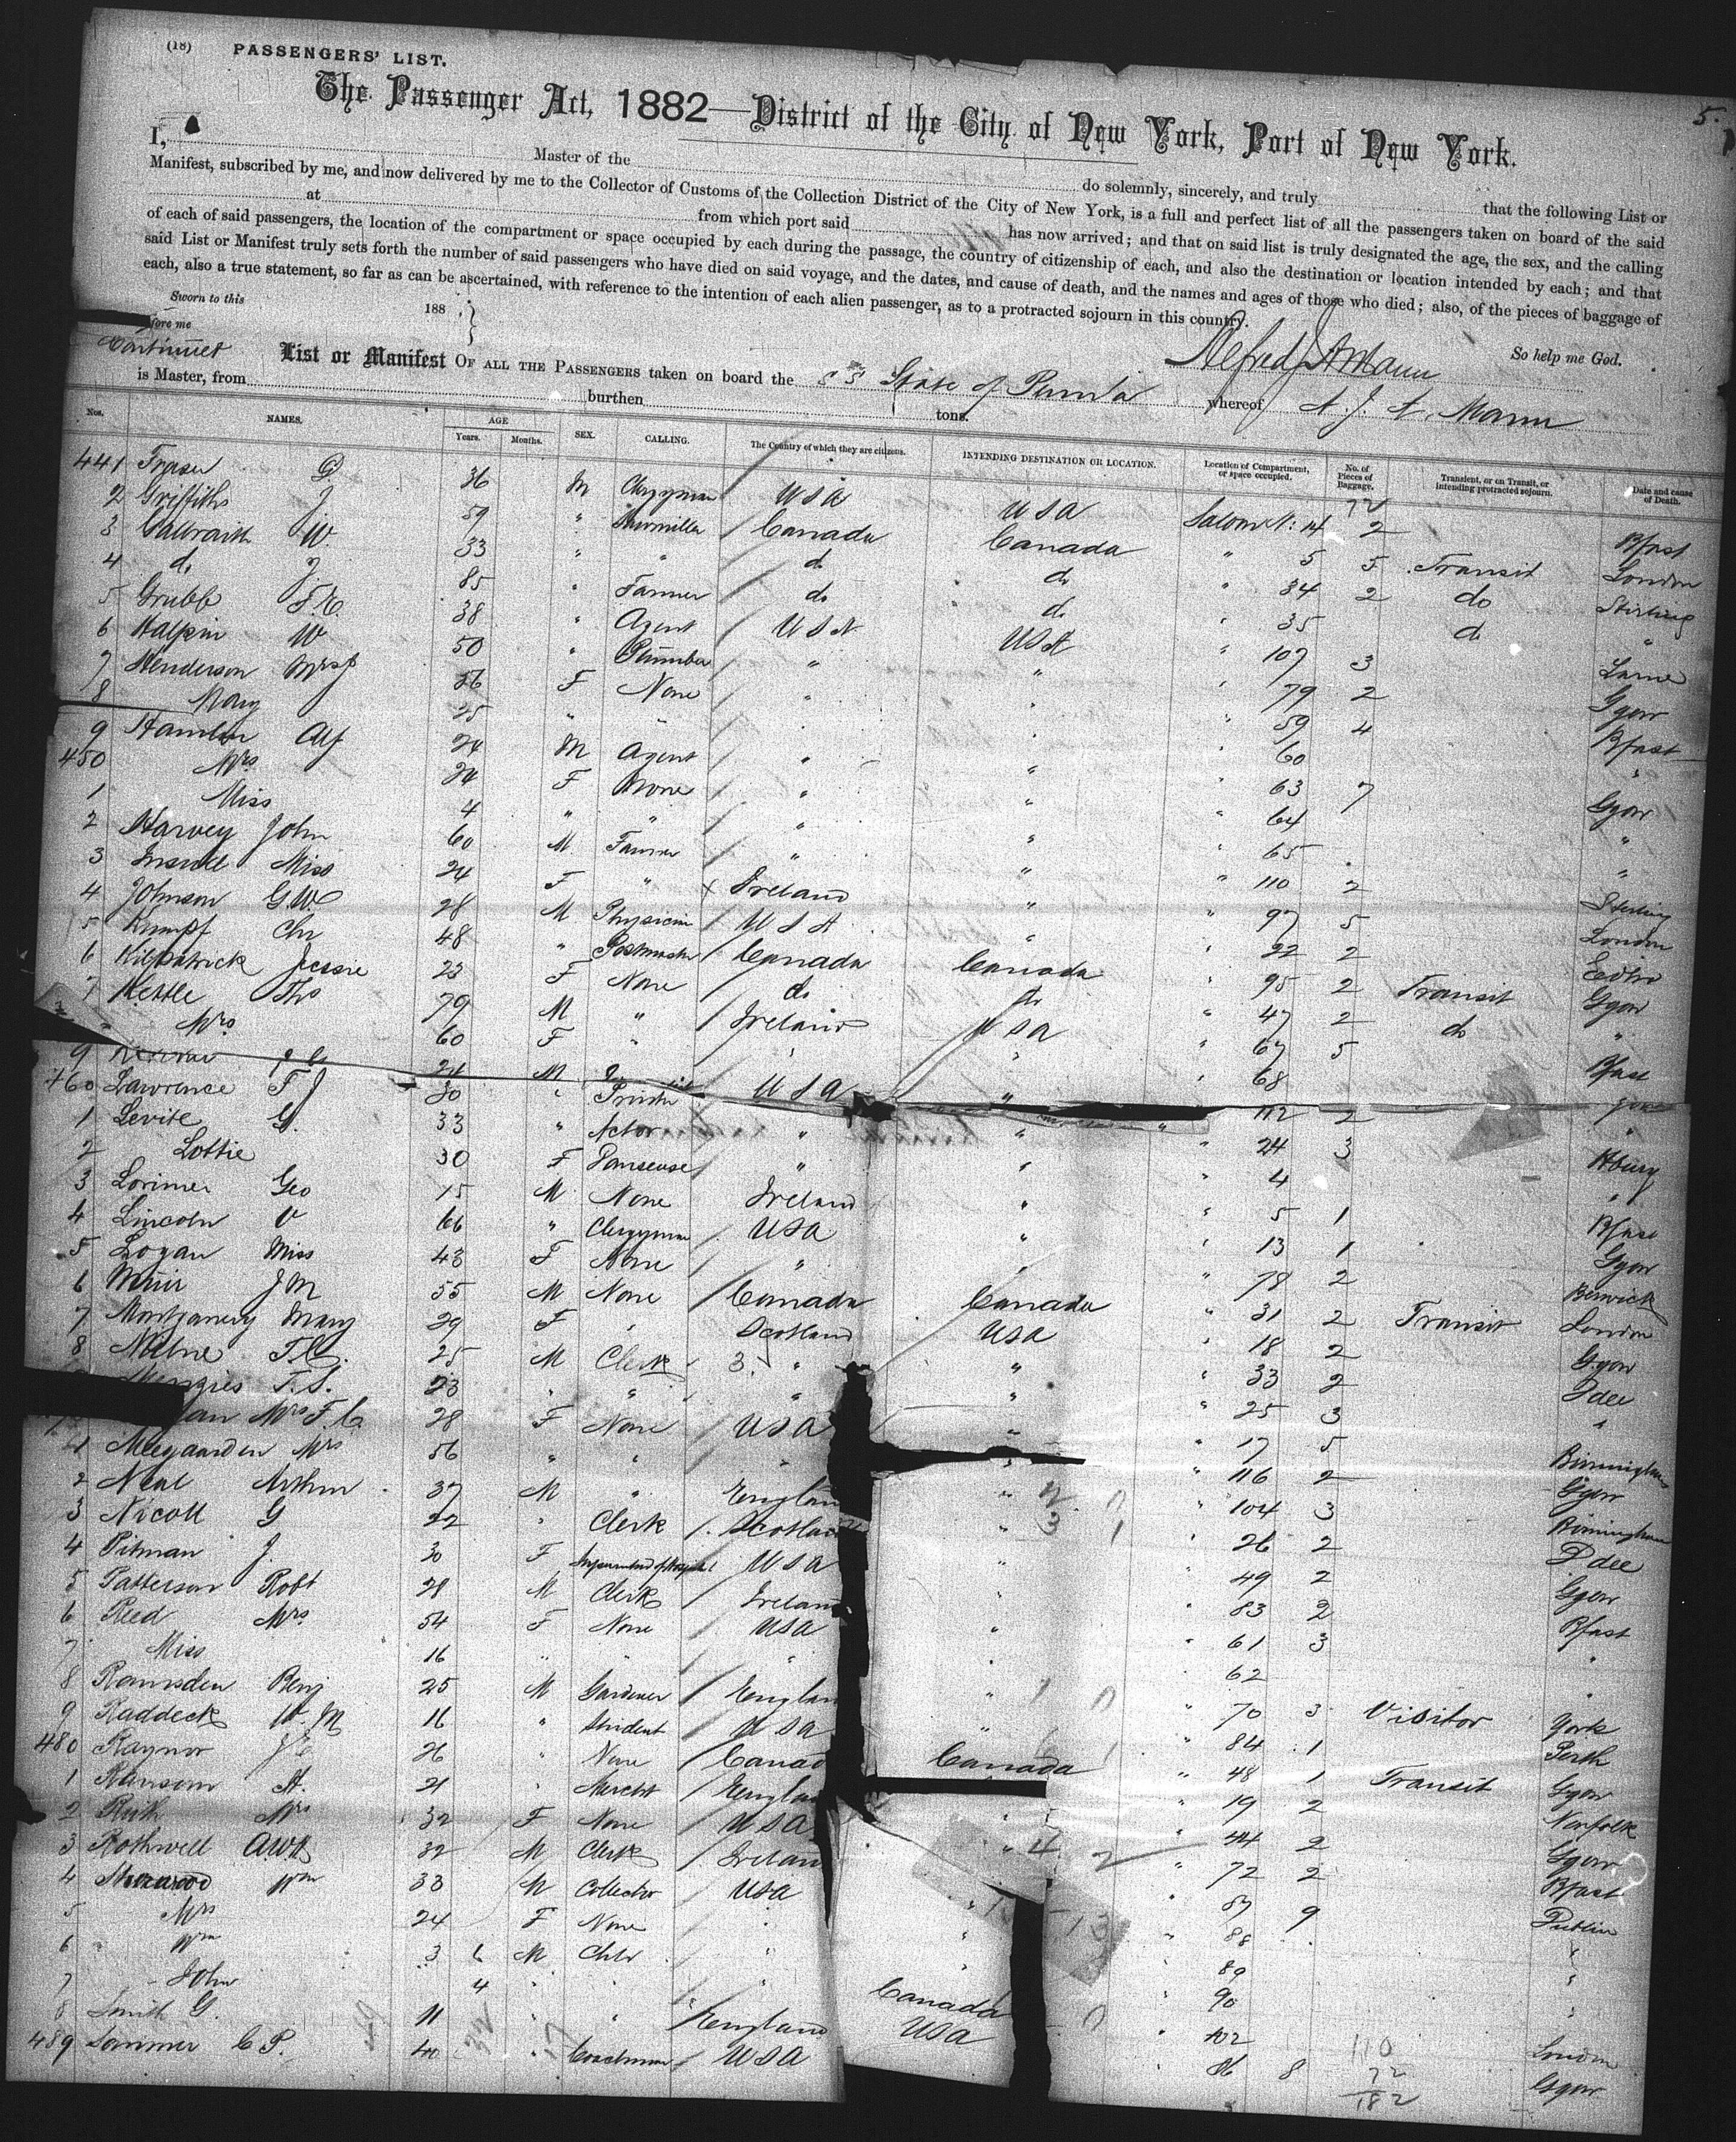 (18) PASSENGERS' LIST.
5.
The Passenger Act, 1882—District of the City of New York, Port of New York.
I, Master of the do solemnly, sincerely, and truly that the following List or
Manifest, subscribed by me, and now delivered by me to the Collector of Customs of the Collection District of the City of New York, is a full and perfect list of all the passengers taken on board of the said
at from which port said has now arrived; and that on said list is truly designated the age, the sex, and the calling
of each of said passengers, the location of the compartment or space occupied by each during the passage, the country of citizenship of each, and also the destination or location intended by each; and that
said List or Manifest truly sets forth the number of said passengers who have died on said voyage, and the dates, and cause of death, and the names and ages of those who died; also, of the pieces of baggage of
each, also a true statement, so far as can be ascertained, with reference to the intention of each alien passenger, as to a protracted sojourn in this country.
Sworn to this 188
fore me
So help me God.
Continued List or Manifest OF ALL THE PASSENGERS taken on board the SS State of whereof A. J. A. Mann
is Master, from burthen tons.
Nos. NAMES. AGE Years. Months. SEX. CALLING. The Country of which they are citizens. INTENDING DESTINATION OR LOCATION. Location of Compartment, or space occupied. No. of Pieces of Baggage. Transient, or on Transit, or intending protracted sojourn. Date and cause of Death.
72
441 Fraser D. 36 M Clergyman USA USA Saloon N: 14 2 Bfast
2 Griffiths J 59 " Canada Canada " 5 5 Transit London
3 Galbraith W. 33 " " do do " 34 2 do Stirling
4 do J. 85 " Farmer do do " 35 do "
5 Grubb 38 " Agent USA USA " 107 3 Larne
6 Halpin W 50 " Plumber " " " 79 2 Ggow
7 Henderson Mrs J 56 F None " " " 59 4 Bfast
8 Mary 25 " " " " " 60 "
9 Hamlin Alf 24 M Agent " " " 63 7 Ggow
450 Mrs 24 F None " " " 64 "
1 Miss 4 " " " " " 65 "
2 Harvey John 60 M Farmer " " " 110 2 Stirling
3 Miss 24 F " Ireland " " 97 5 London
4 Johnson G.W. 28 M Physician USA " " 22 2 Edbro
5 Kumpf Chr 48 " Postmaster Canada Canada " 95 2 Transit Ggow
6 Kilpatrick Jessie 23 F None do do " 47 2 do "
7 Kettle Tho 79 M " Ireland USA " 67 5 Bfast
" Mrs 60 F " " " " 68
9 24 M USA " 112 2 "
460 Lawrence F J 30 " Printer " " " 24 3 Hburg
1 Levite G. 33 " Actor " " " 4 "
2 Lottie 30 F Danseuse " " " 5 1 Bfast
3 Lorimer Geo 15 M None Ireland " " 13 1 Ggow
4 Lincoln V 66 " Clergyman USA " " 78 2 Berwick
5 Logan Miss 43 F None "
6 Muir J M 55 M None Canada Canada " 31 2 Transit London
7 Montgomery Mary 29 F " Scotland USA " 18 2 Ggow
8 Milne T.C. 25 M Clerk " " " 33 2 Ddee
Menzies T.S. 23 " " " " " 25 3 "
Mrs F.C. 28 F None USA " " 17 5 Birmingham
1 Meegaarden Mrs 56 " " " " " 116 2 Ggow
2 Neal Arthur 37 M " England " " 104 3 Birmingham
3 Nicoll G 22 " Clerk Scotland " " 26 2 Ddee
4 Pitman J. 30 F USA " " 49 2 Ggow
5 Patterson Robt 28 M Clerk Ireland " " 83 2 Bfast
6 Reed Mrs 54 F None USA " " 61 3 "
7 Miss 16 " " " 62 "
8 Ramsden Benj 25 M Gardener England " " 70 3 Visitor York
9 Raddeck W. M 16 " Student USA " " 84 1 Perth
480 Raynor J E 26 " None Canad Canada " 48 1 Transit Ggow
1 Ransom A. 21 " Mercht England " 19 2 Norfolk
2 Ruth Mrs 32 F None USA " " 44 2 Ggow
3 Rothwell AWR 32 M Clerk Ireland " " 72 2 Bfast
4 Wm 33 M Collector USA " " 87 9 Dublin
5 Mrs 24 F None " " " 88 "
6 " Wm 3 6 M Chld " " " 89 "
7 John 4 " " " 90 "
8 Smith G. 11 " " England Canada " 102 London
489 C P. 40 " Coachman USA USA " 86 8 Ggow
110
72
182